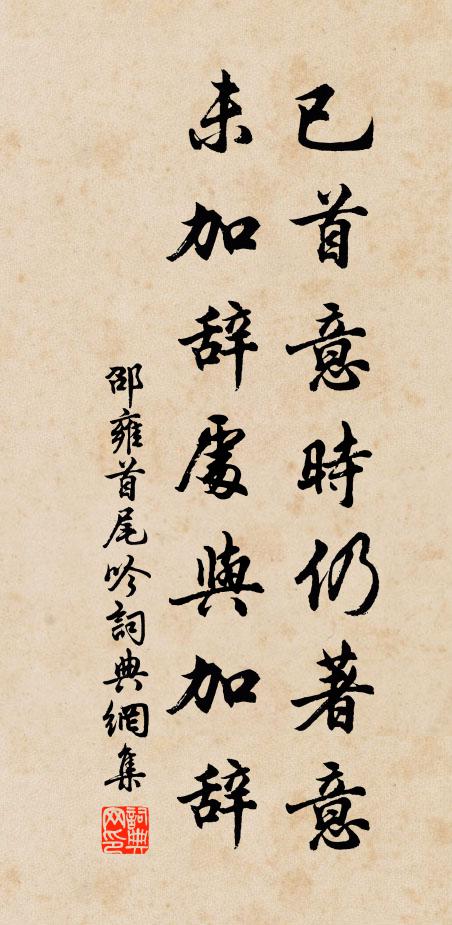 已首意時仍著意
未加辞處與加辞
邵雍首尾吟詞典網集
詞典
网印